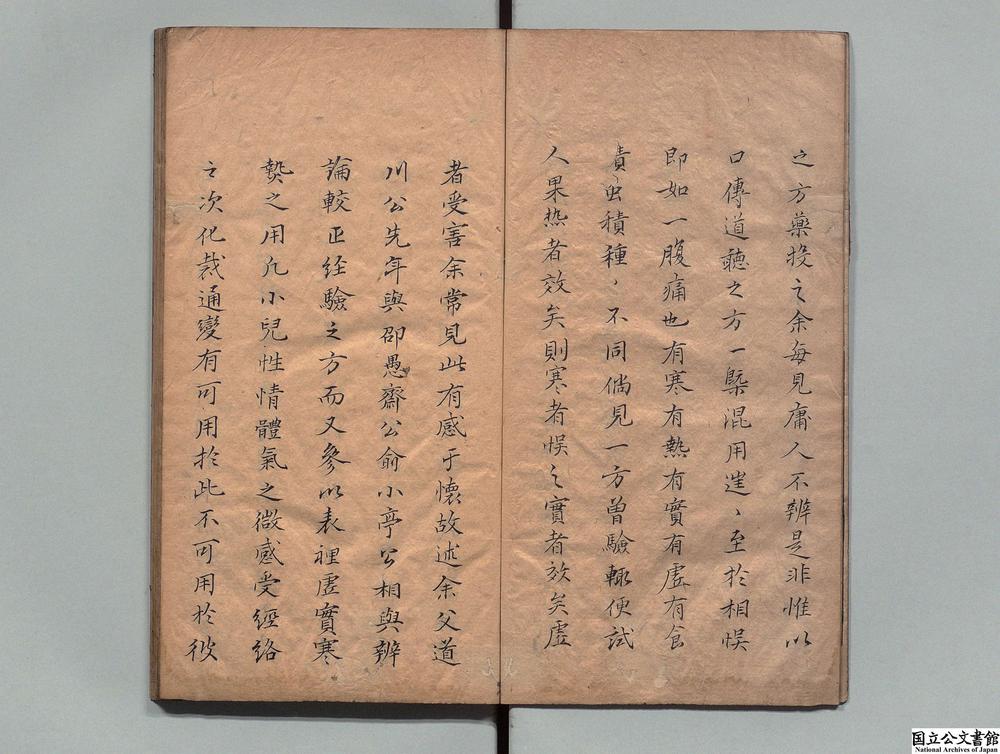 之方藥投之余每見庸人不辨是非惟以
口傳道聽之方一槩混用逞〻至於相悞
即如一腹痛也有寒有熱有實有虛有食
積虫積種〻不同倘見一方曾驗輙便試
人果热者效矣則寒者悞之實者效矣虛
者受害余常見此有感于懷故述余父道
川公先年與邵愚齋公俞小亭公相與辨
論較正经驗之方而又參以表裡虛實寒
𤍠之用凢小兒性情體氣之微感受經絡
之次化裁通變有可用於此不可用於彼
国立公文書館
National Archives of Japan